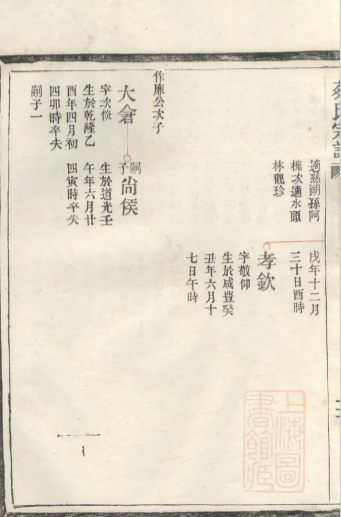 戊年十二月
三十日酉時
適慈湖孫阿
桃次適水頭
林觀珍
孝欽
字敬仰
生於咸豐癸
丑年六月十
七日午時
作廉公次子
嗣子
尚侯
生於道光壬
午年六月廿
四寅時卒失
大倉
生於乾隆乙
酉年四月初
四卯時卒失
嗣子一
上海圖
書館藏